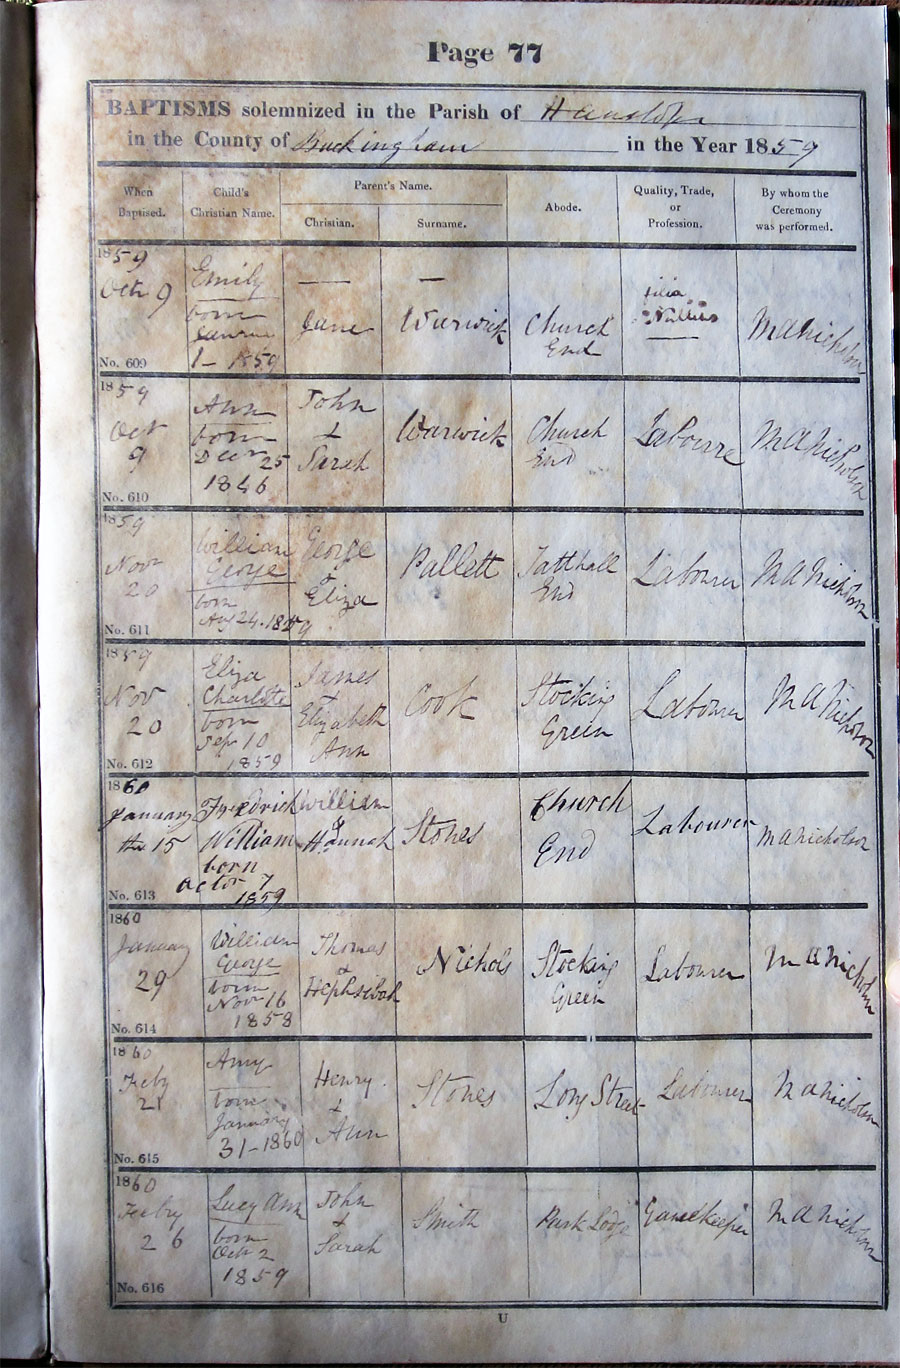 Page 77
BAPTISMS solemnized in the Parish of Hanslope
in the County of Buckingham in the Year 1859
When Baptised.
Child's Christian Name.
Parent's Name.
Christian.
Surname.
Abode.
Quality, Trade, or Profession.
By whom the Ceremony was performed.
1859
Octr 9
No. 609
Emily
born
1 - 1859
— Jane
— Warwick
Church End
filia
Nullius
M A Nicholson
1859
Oct 9
No. 610
Ann
born
Decr 25
1846
John
&
Sarah
Warwick
Church End
M A Nicholson
1859
Novr 20
No. 611
William
George
born
Aug 24. 1859
George
&
Eliza
Pallett
Tatthall End
Labourer
M A Nicholson
1859
Nov 20
No. 612
Eliza
Charlotte
born
Sepr 10
1859
James
&
Elizabeth
Ann
Cook
Stocking Green
Labourer
M A Nicholson
1860
January
the 15
No. 613
Fredrick
William
born
octor 7
1859
William
&
Hannah
Stones
Church End
Labourer
M A Nicholson
1860
January
29
No. 614
William
George
born
Novr 16
1858
Thomas
&
Hephsibah
Nichols
Stocking Green
Labourer
M A Nicholson
1860
Feby
21
No. 615
Amy
born
January
31 - 1860
Henry
&
Ann
Stones
Long Street
Labourer
M A Nicholson
1860
26
No. 616
Lucy Ann
born
Octr 2
1859
John
&
Sarah
Smith
Park Lodge
Gamekeeper
M A Nicholson
U